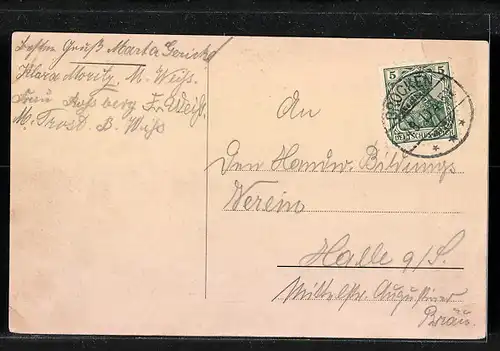 Besten Gruß Marta Gericke
Klara Moritz. M. Weiß.
Frau Roßberg F. Weiß.
M. Trost. B. Weiß
An
Den Handw. Bildungs
Verein
Halle a/S.
Mittelstr. Augustiner
Bräu.
5 5
BROCKEN
DEUTSCHES REICH